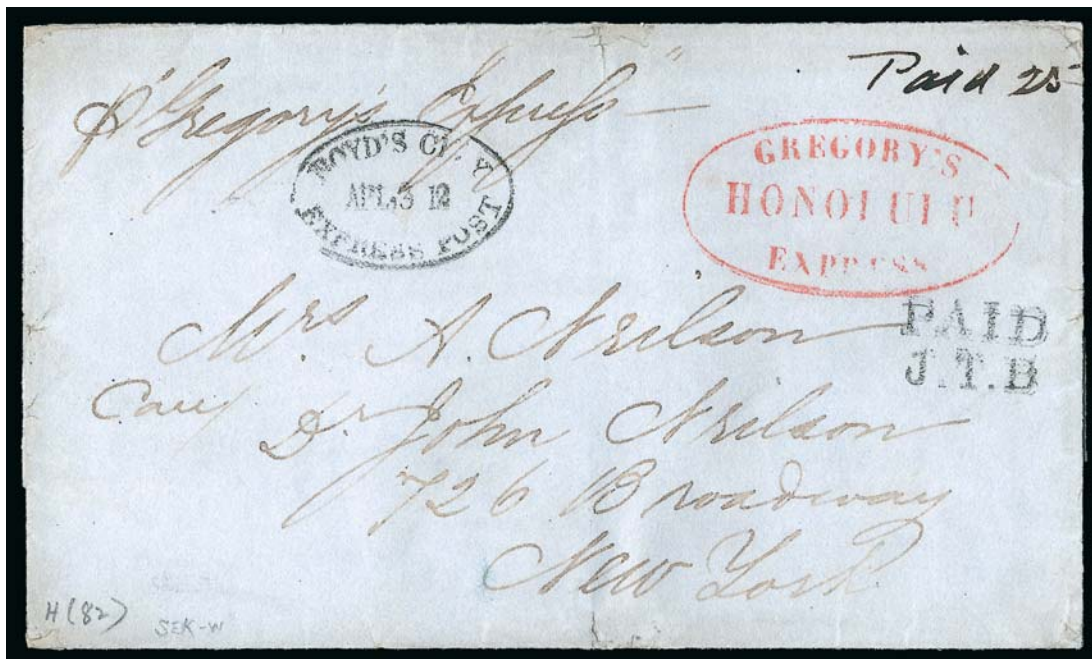 Paid 25
pr "Gregory's Express"
BOYD'S CITY
APL.3 12
EXPRESS POST
GREGORY'S
HONOLULU
EXPRESS
PAID
J.T.B
Mrs A. Neilson
Care Dr John Neilson
726 Broadway
New York
H(82)
SEK-W